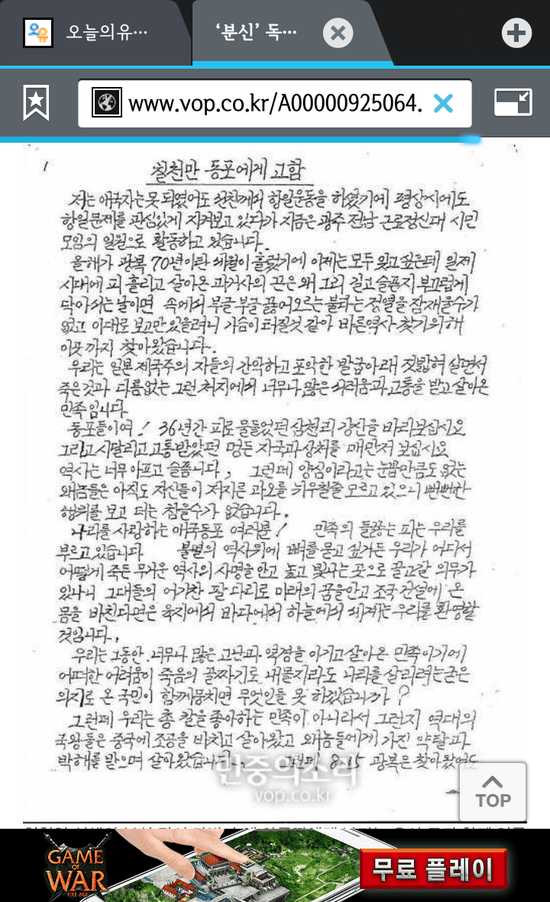 오늘의유…
'분신' 독…
www.vop.co.kr/A00000925064.
1
칠천만 동포에게 고함
저는 애국자는 못 되었어도 선친께서 항일운동을 하셨기에 평상시에도
항일문제를 관심있게 지켜보고 있다가 지금은 광주 전남 근로정신대 시민
모임의 일원으로 활동하고 있습니다.
올해가 광복 70년이란 세월이 흘렀기에 이제는 모두 잊고 싶은데 일제
시대에 피 흘리고 살아온 과거사의 끈은 왜 그리 길고 슬픈지 부끄럽게
닥아서는 날이면 속에서 부글부글 끓어오르는 불타는 정열을 잠재울수가
없고 이대로 보고만 있을려니 가슴이 터질것 같아 바른역사 찾기위해
이곳까지 찾아왔습니다.
우리는 일본 제국주의 자들의 간악하고 포악한 발굽아래 짓밟혀 살면서
죽은것과 다름없는 그런 처지에서 너무나 많은 서러움과 고통을 받고 살아온
민족입니다
동포들이여! 36년간 피로 물들었던 삼천리 강산을 바라보십시요
그리고 시달리고 고통받았던 멍든 자국과 상처를 매만져 보십시요
역사는 너무 아프고 슬픕니다, 그런데 양심이라고는 눈꼽만큼도 없는
왜놈들은 아직도 자신들이 저지른 과오를 뉘우칠줄 모르고 있으니 뻔뻔한
행위를 보고 더는 참을수가 없습니다.
나라를 사랑하는 애국동포 여러분! 민족의 들끓는 피는 우리를
부르고있습니다 불멸의 역사위에 뼈를 묻고 싶거든 우리가 어디서
어떻게 죽든 무거운 역사의 사명을 안고 높고 빛나는 곳으로 끌고갈 의무가
있나니 그대들의 억가찬 팔 다리로 미래의 꿈을안고 조국 건설에 온
몸을 바친다면은 육지에서 바다에서 하늘에서 세계는 우리를 환영할
것입니다,
우리는 그동안 너무나 많은 고난과 역경을 이기고 살아온 민족이기에
어떠한 어려움이 죽음의 골짜기로 내몰지라도 나라를 살리려는 굳은
의지로 온 국민이 함께 뭉치면 무엇인들 못 하겠습니까?
그런데 우리는 총 칼을 좋아하는 민족이 아니라서 그런지 역대의
국왕들은 중국에 조공을 바치고 살아왔고 왜놈들에게 가진 약탈과
박해를 받으며 살아왔습니다. 그런데 8.15 광복은 찾아왔어도
민중의소리
vop.co.kr
TOP
GAME OF WAR
FIRE AGE
무료 플레이